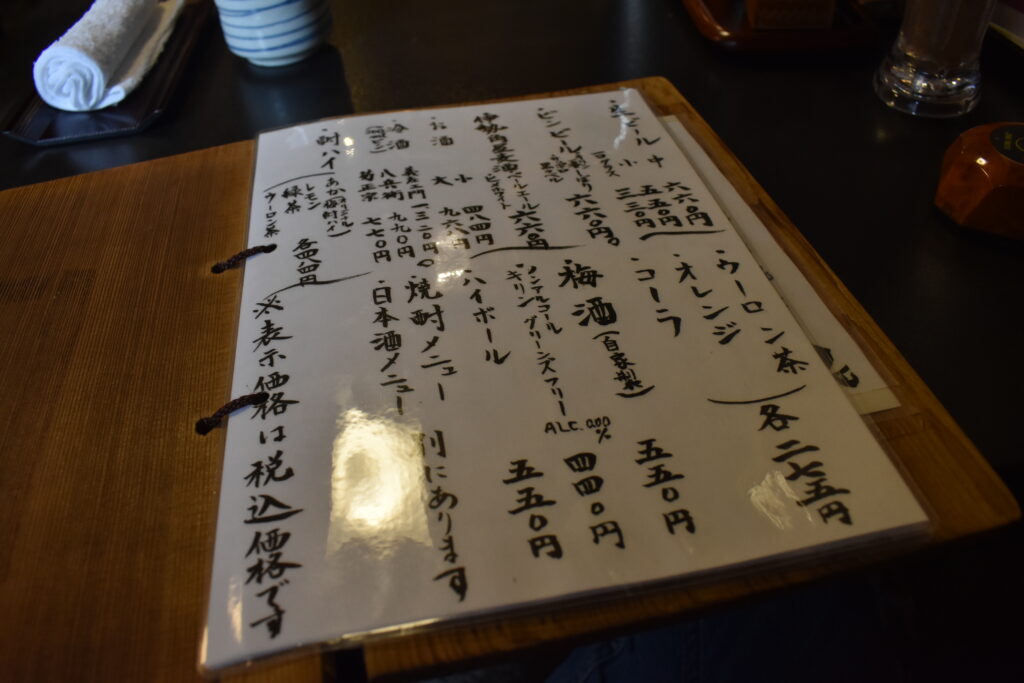 ・生ビール
中 六六〇円
小 五五〇円
三三〇円
・ビンビール
六六〇円
伊勢角屋麦酒
ペールエール
六六〇円
・お酒
小 四八四円
大 九六八円
・冷酒
一三二〇円
八兵衛 九九〇円
菊正宗 七七〇円
・酎ハイ
レモン
緑茶
ウーロン茶
各四八四円
・ウーロン茶
オレンジ
・コーラ
各二七五円
・梅酒(自家製)
五五〇円
・ノンアルコール
キリン グリーンズフリー
ALC.0.00%
四四〇円
・ハイボール
五五〇円
・焼酎メニュー
・日本酒メニュー
別にあります
※表示価格は税込価格です